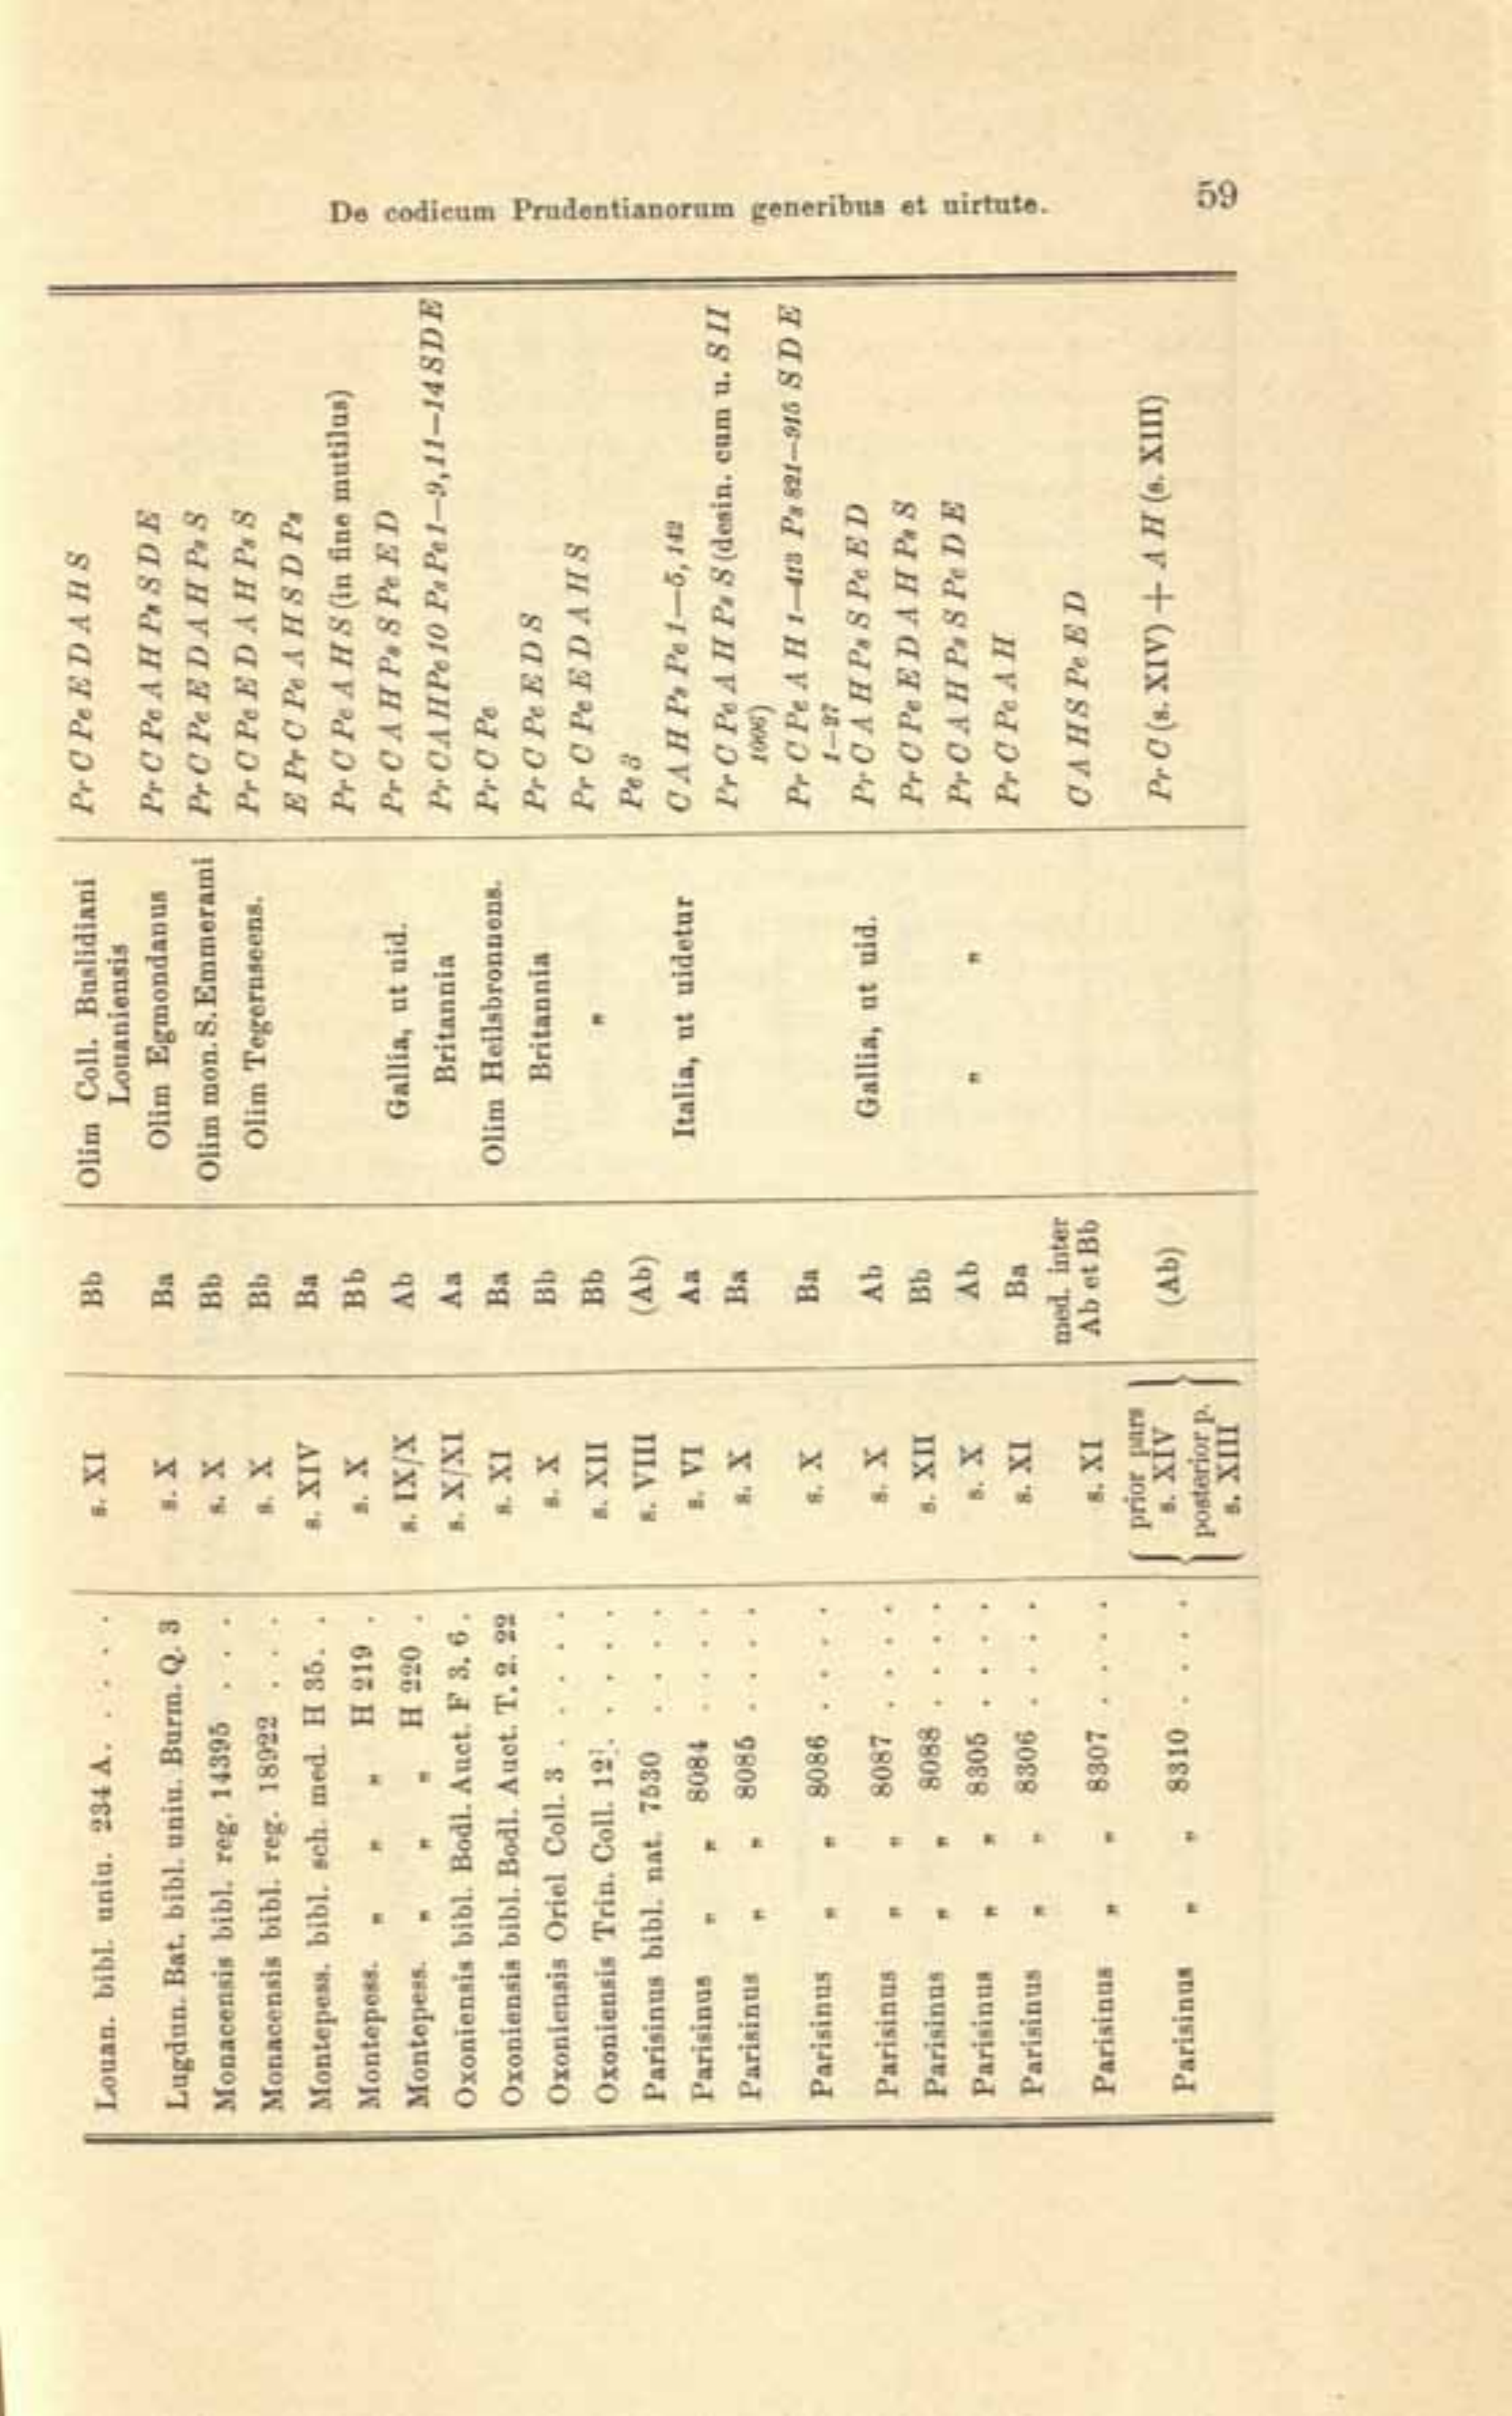 De codicum Prudentianorum generibus et uirtute. 59
Louan. bibl. uniu. 234 A. . . . . s. XI Bb Olim Coll. Buslidiani Louaniensis Pr C Pe E D A H S
Lugdun. Bat. bibl. uniu. Burm. Q. 3 s. X Ba Olim Egmondanus Pr C Pe A H Ps S D E
Monacensis bibl. reg. 14395 . . . s. X Bb Olim mon. S. Emmerami Pr C Pe E D A H Ps S
Monacensis bibl. reg. 18922 . . . s. X Bb Olim Tegernseens. Pr C Pe E D A H Ps S
Montepess. bibl. sch. med. H 35. . s. XIV Ba E Pr C Pe A H S D Ps
Montepess. „ „ „ H 219 . s. X Bb Pr C Pe A H S (in fine mutilus)
Montepess. „ „ „ H 220 . s. IX/X Ab Gallia, ut uid. Pr C A H Ps S Pe E D
Oxoniensis bibl. Bodl. Auct. F 3. 6 . s. X/XI Aa Britannia Pr C A H Pe 10 Ps Pe 1—9, 11—14 S D E
Oxoniensis bibl. Bodl. Auct. T. 2. 22 s. XI Ba Olim Heilsbronnens. Pr C Pe
Oxoniensis Oriel Coll. 3 . . . . . s. X Bb Britannia Pr C Pe E D S
Oxoniensis Trin. Coll. 12. . . . . s. XII Bb „ Pr C Pe E D A H S
Parisinus bibl. nat. 7530 . . . . s. VIII (Ab) Pe 3
Parisinus „ „ 8084 . . . . s. VI Aa Italia, ut uidetur C A H Ps Pe 1—5, 142
Parisinus „ „ 8085 . . . . s. X Ba Pr C Pe A H Ps S (desin. cum u. S II
1006)
Parisinus „ „ 8086 . . . . s. X Ba Pr C Pe A H 1—413 Ps 821—915 S D E
1—27
Parisinus „ „ 8087 . . . . s. X Ab Gallia, ut uid. Pr C A H Ps S Pe E D
Parisinus „ „ 8088 . . . . s. XII Bb Pr C Pe E D A H Ps S
Parisinus „ „ 8305 . . . . s. X Ab „ „ Pr C A H Ps S Pe D E
Parisinus „ „ 8306 . . . . s. XI Ba Pr C Pe A H
Parisinus „ „ 8307 . . . . s. XI med. inter Ab et Bb C A H S Pe E D
Parisinus „ „ 8310 . . . . { prior pars s. XIV posterior p. s. XIII } (Ab) Pr C (s. XIV) + A H (s. XIII)